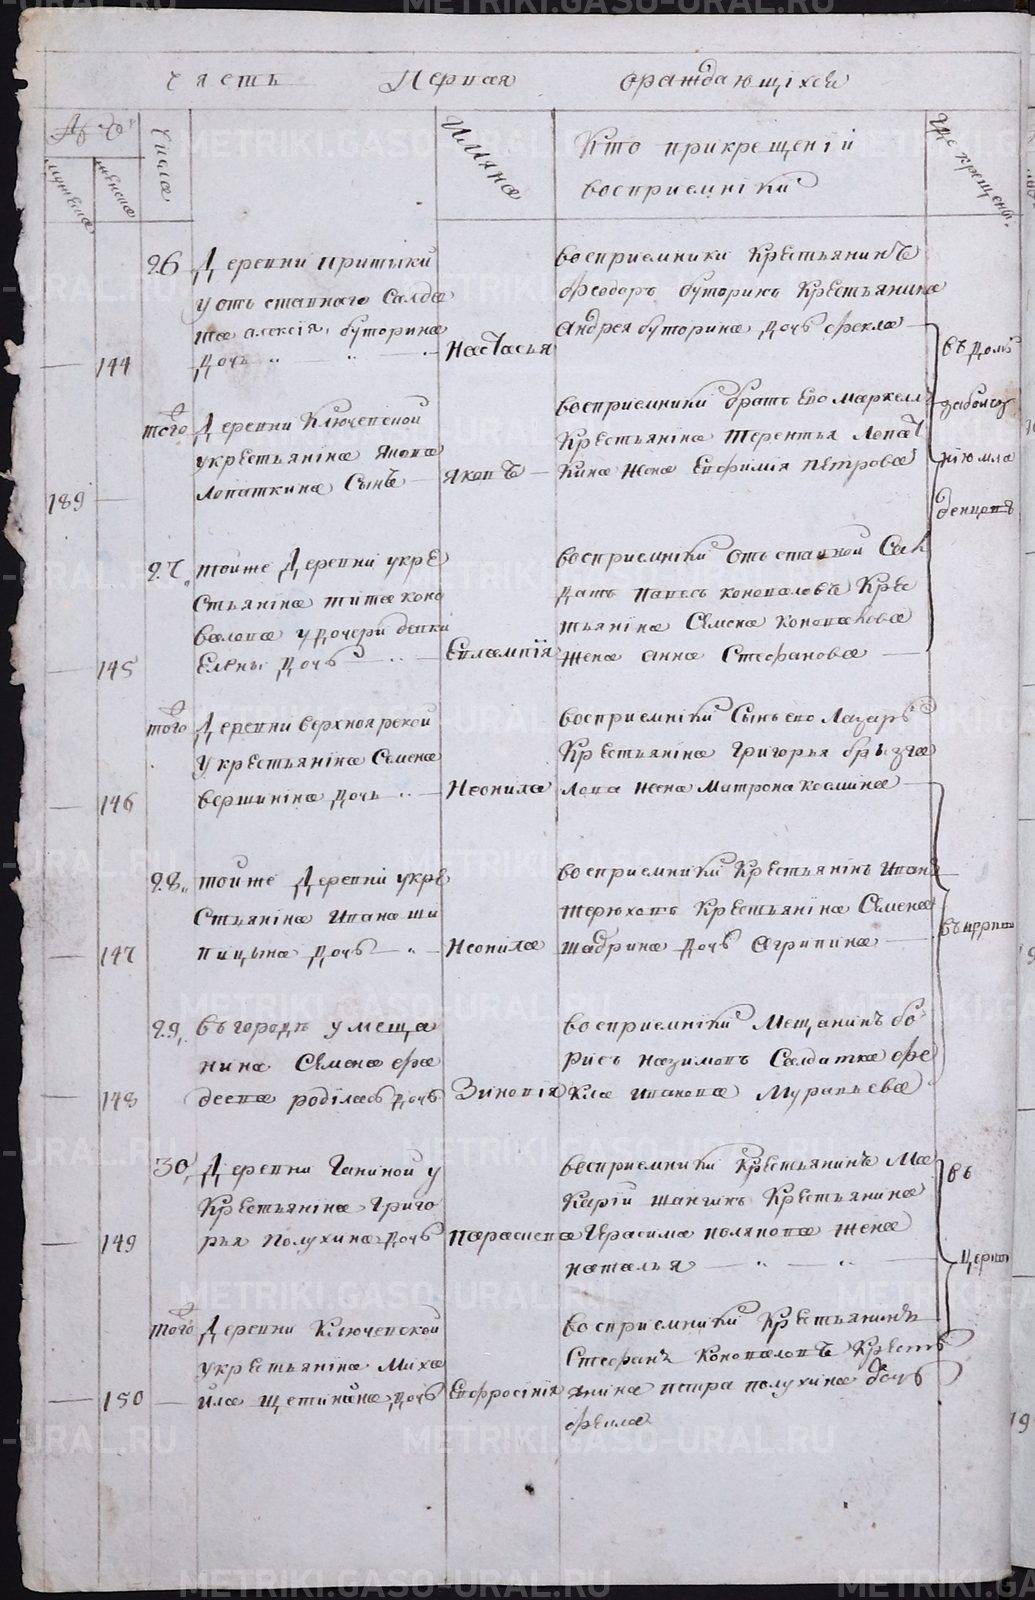 часть Первая ораждающихся
№
мужеска
женска
числа
Имяна
Кто прикрещеніи
восприемніки
Где крещены
26 Деревни притыки
у отъ ставнаго Салда
та алексія буторина
144 Дочь Настасья
восприемники Крестьянинъ
феодоръ буторинъ Крестьянина
Андрея буторина дочь фекла
того Деревни Ключевской
укрестьяніна Якова
189 Лопаткина Сынъ Яковъ
восприемники братъ Его маркелъ
Крестьяніна Терентья Лопат
кина жена Евфимія петрова
въ домѣ
младенцевъ
27 тойже Деревни укре
Стьяніна тита коно
валова у дочери девки
145 Елены дочь Евлампія
восприемніки Отъ ставной Сал
датъ Павелъ коноваловъ Крес
тьяніна Семена Коновалова
жена анна Стефанова
того Деревни верхноярской
укрестьяніна Семена
146 вершиніна дочь Неонила
восприемніки Сынъ его Лазарь
Крестьяніна григорья брызга
лова жена Матрона космина
28 тойже Деревни укре
Стьяніна Ивана ши
147 піцына дочь Неонила
восприемніки Крестьянінъ Иванъ
терюховъ Крестьяніна Семена
шадрина дочь агрипина
въ церкви
29 въ городѣ умеща
нина Семена фа
148 деева роділась дочь Зиновія
восприемніки Мещанинъ бо
рисъ назимовъ Салдатка фе
кла иванова Муравьева
30 Деревни Ганиной у
Крестьяніна Григо
149 рья полухина дочь парасиева
восприемники крестьянинъ Ма
карій шангинъ Крестьянина
Герасима полякова жена
наталья
въ
церкви
того Деревни Ключевской
укрестьяніна Миха
150 ила щетинина дочь Евфросінія
восприемники Крестьянинъ
Стефанъ Коноваловъ Кресть
янина петра полухина дочь
фекла
METRIKI.GASO-URAL.RU